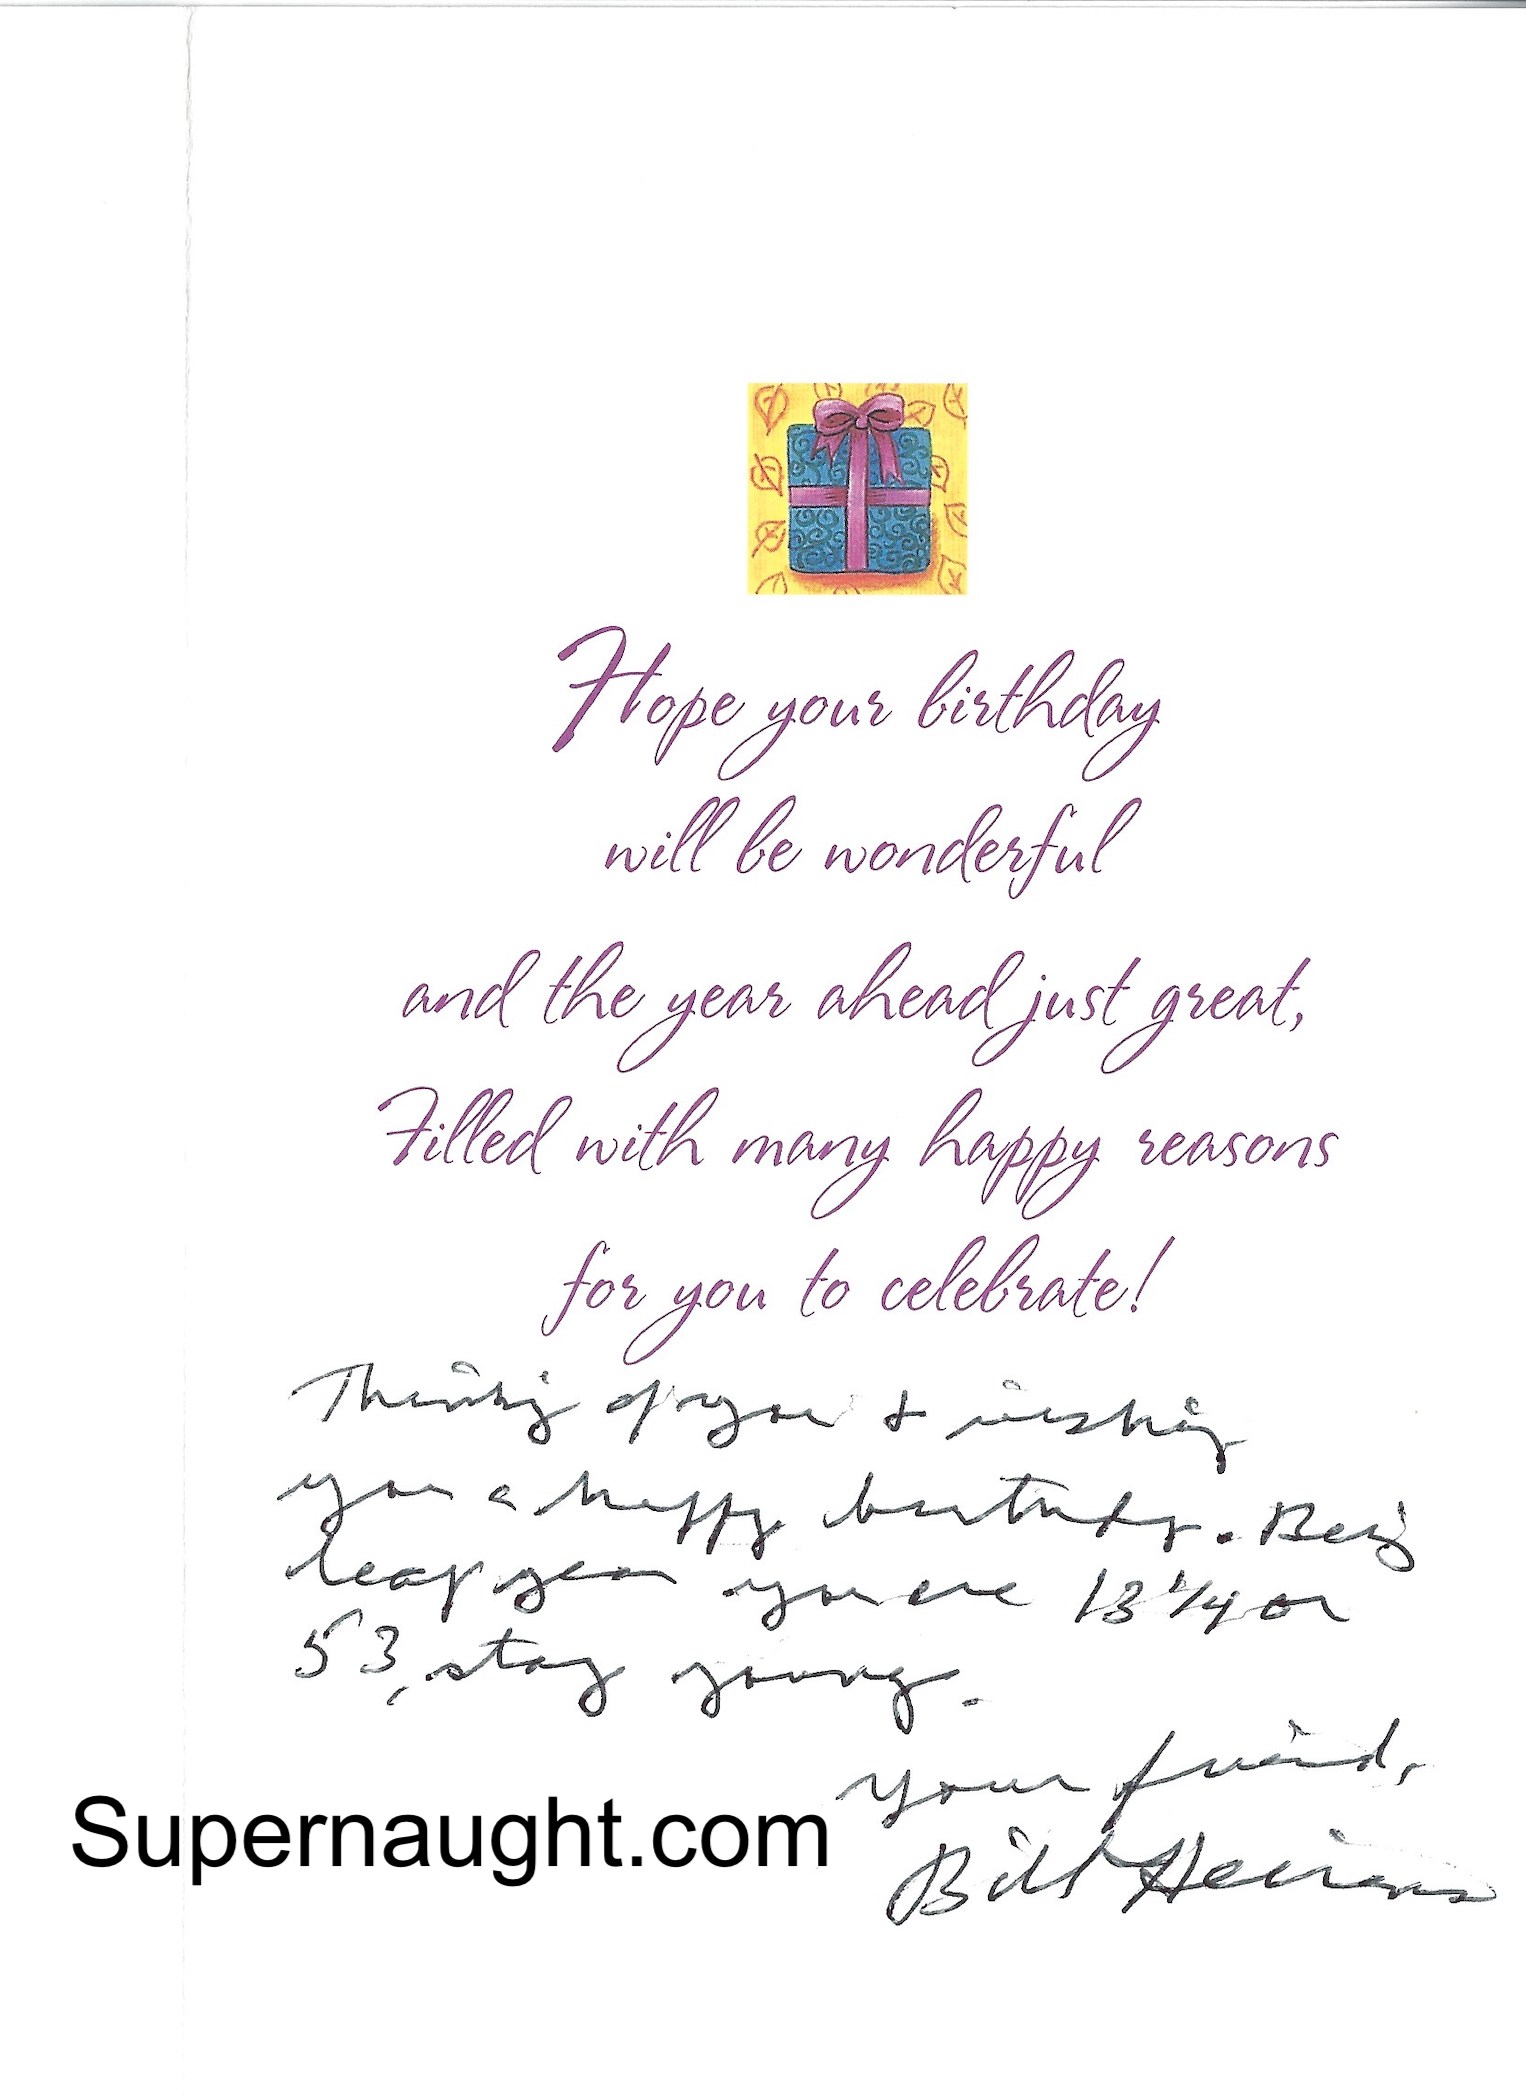 Hope your birthday
will be wonderful
and the year ahead just great,
Filled with many happy reasons
for you to celebrate!
Thinking of you & wishing
you a happy birthday. Being
leap year you are 13 1/4 or
53, stay young.
Your friend,
Bill Heirens
Supernaught.com